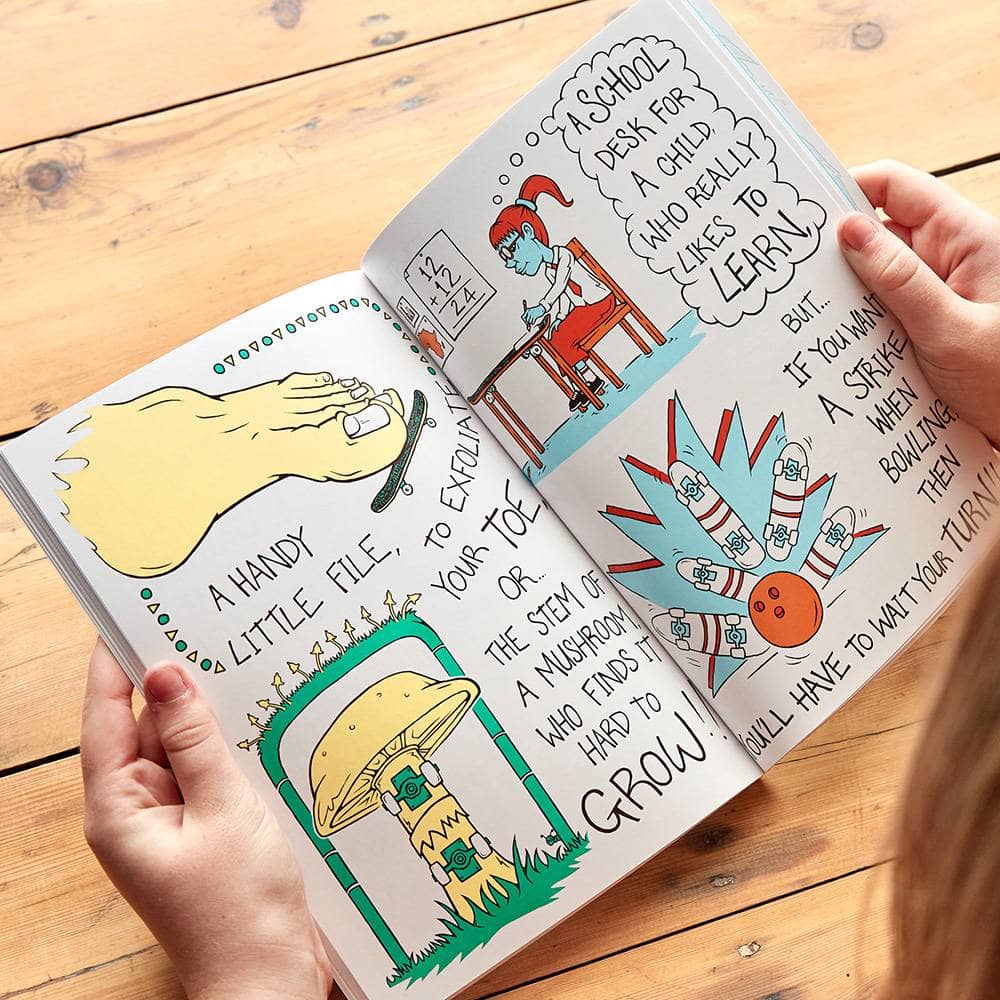 A HANDY
LITTLE FILE,
TO EXFOLIATE
YOUR TOE,
OR...
THE STEM OF
A MUSHROOM
WHO FINDS IT
HARD TO
GROW!!
12
+12
24
A SCHOOL
DESK FOR
A CHILD
WHO REALLY
LIKES TO
LEARN,
BUT...
IF YOU WANT
A STRIKE
WHEN
BOWLING,
THEN
YOU'LL HAVE TO WAIT YOUR TURN!!